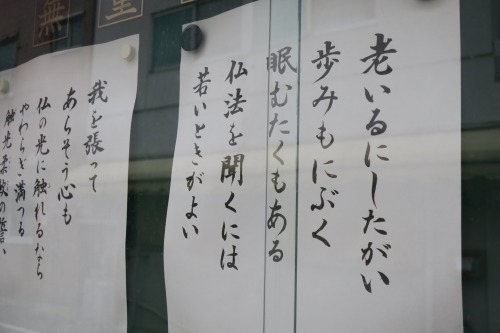 老いるにしたがい
歩みもにぶく
眠むたくもある
仏法を聞くには
若いときがよい
我を張って
あらそう心も
仏の光に触れるなら
やわらぎ満つる
触光柔軟の誓い
無